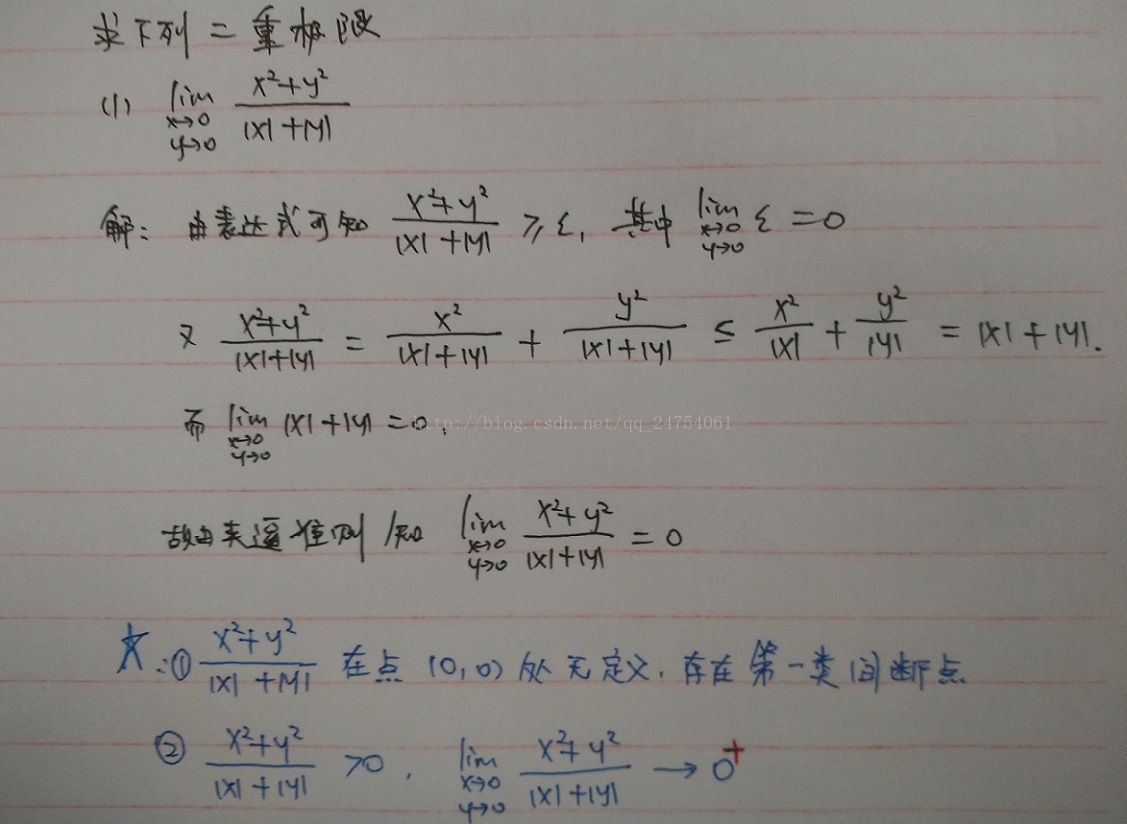 求下列二重极限
(1) lim x→0 y→0 (x²+y²)/(|x|+|y|)
解: 由表达式可知 (x²+y²)/(|x|+|y|) ≥ ε, 其中 lim x→0 y→0 ε = 0
又 (x²+y²)/(|x|+|y|) = x²/(|x|+|y|) + y²/(|x|+|y|) ≤ x²/|x| + y²/|y| = |x|+|y|.
而 lim x→0 y→0 |x|+|y| = 0,
http://blog.csdn.net/qq_24754061
故由夹逼准则知 lim x→0 y→0 (x²+y²)/(|x|+|y|) = 0
☆: ① (x²+y²)/(|x|+|y|) 在点 (0,0) 处无定义, 存在第一类间断点
② (x²+y²)/(|x|+|y|) >0, lim x→0 y→0 (x²+y²)/(|x|+|y|) → 0⁺